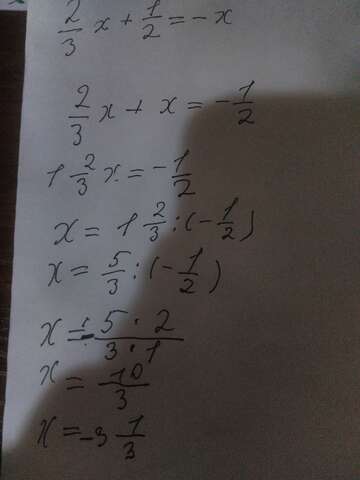 2/3 x + 1/2 = - x
2/3 x + x = - 1/2
1 2/3 x = - 1/2
x = 1 2/3 : (- 1/2)
x = 5/3 : (- 1/2)
x = - 5 · 2 / 3 · 1
x = 10/3
x = -3 1/3